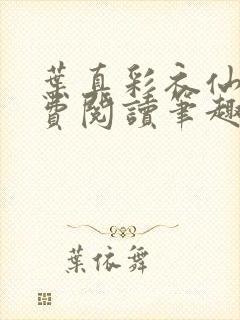 葉真彩衣仙
費閱讀筆趣
葉依舞